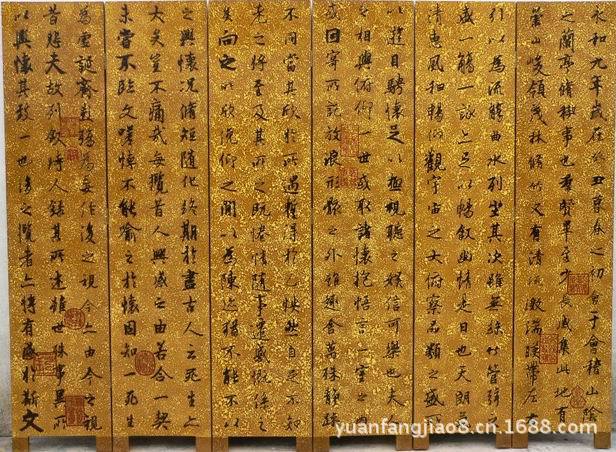 永和九年歲在癸丑暮春之初會于會稽山陰
之蘭亭脩稧事也羣賢畢至少長咸集此地有
崇山峻領茂林脩竹又有清流激湍暎帶左右
引以為流觴曲水列坐其次雖無絲竹管弦之
盛一觴一詠亦足以暢叙幽情是日也天朗氣
清惠風和暢仰觀宇宙之大俯察品類之盛所
以遊目騁懷足以極視聽之娛信可樂也夫人
之相與俯仰一世或取諸懷抱悟言一室之內
或因寄所託放浪形骸之外雖趣舍萬殊靜躁
不同當其欣於所遇蹔得於己快然自足不知
老之將至及其所之既惓情隨事遷感慨係之
矣向之所欣俛仰之間以為陳迹猶不能不以
之興懷況脩短隨化終期於盡古人云死生亦
大矣豈不痛哉每攬昔人興感之由若合一契
未嘗不臨文嗟悼不能喻之於懷固知一死生
為虛誕齊彭殤為妄作後之視今亦由今之視
昔悲夫故列叙時人錄其所述雖世殊事異所
以興懷其致一也後之攬者亦將有感於斯文
yuanfangjiao8.cn.1688.com